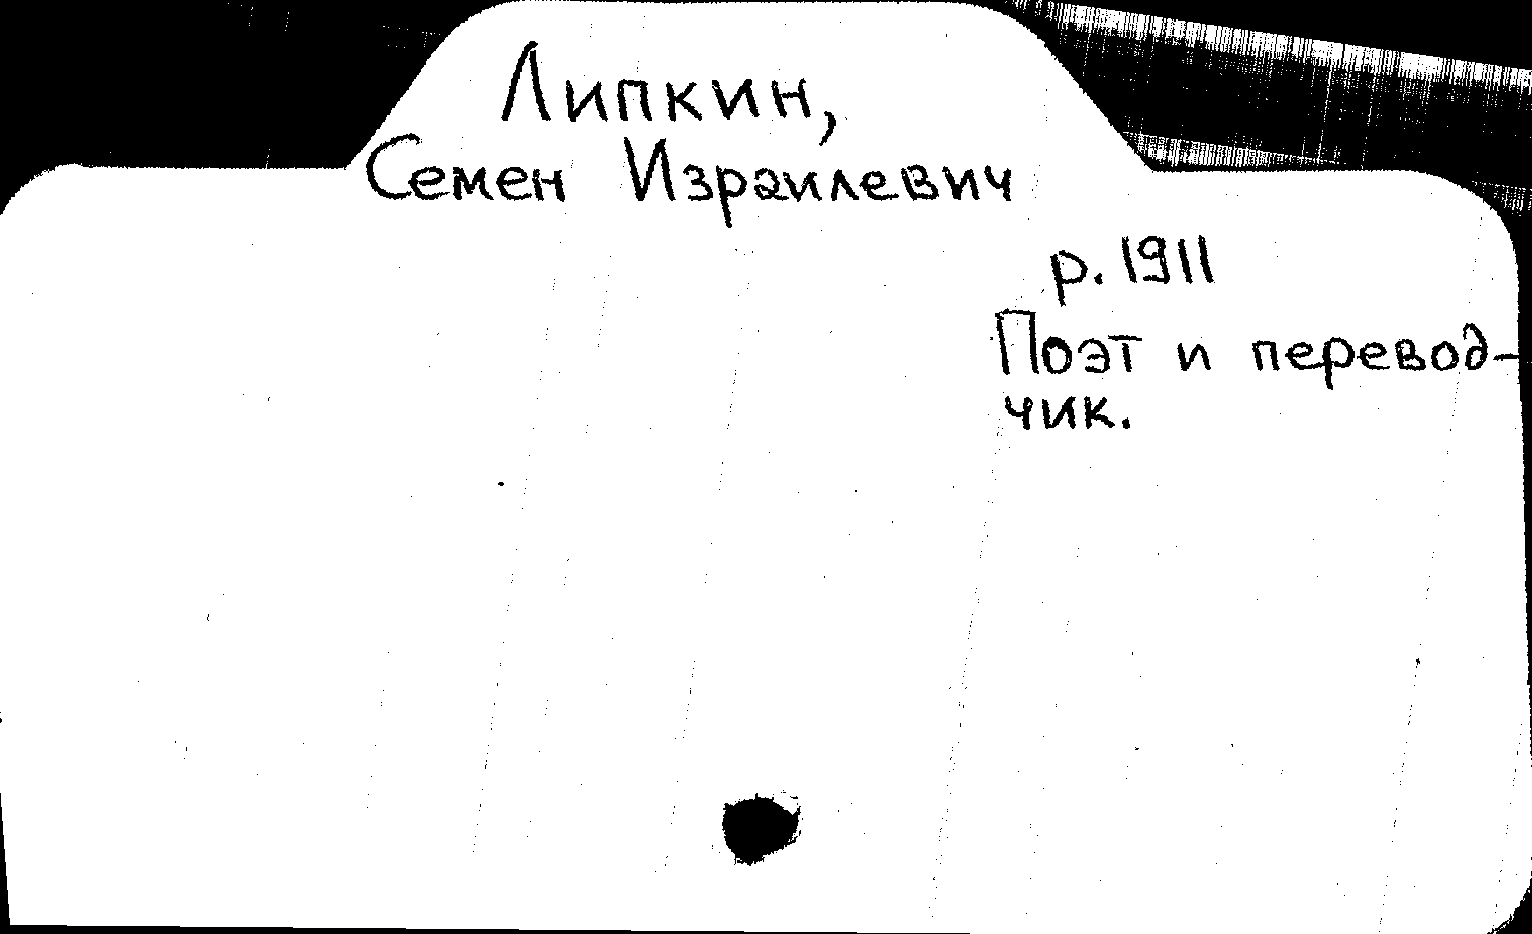 Липкин,
Семен Израилевич
р. 1911
Поэт и перевод-
чик.